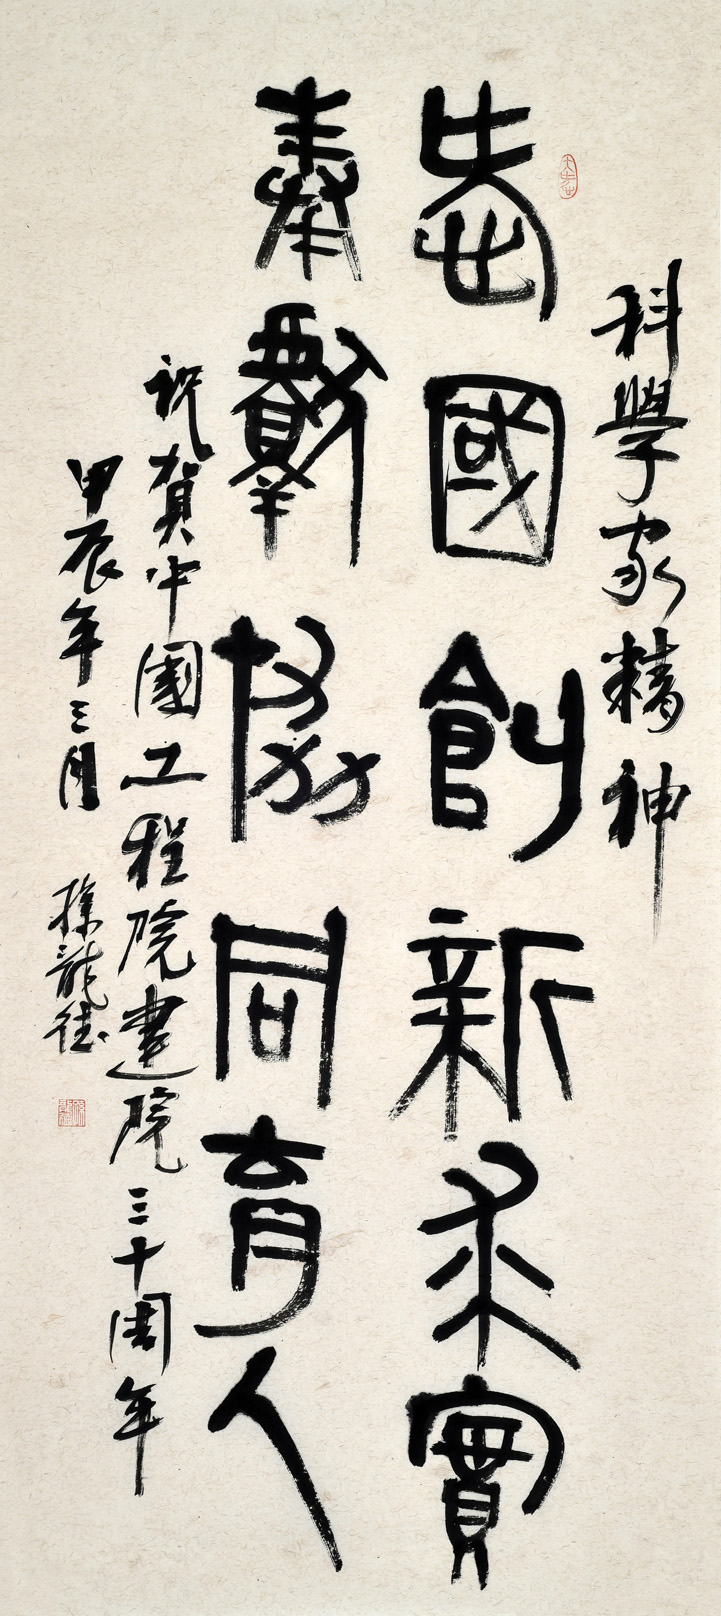 科學家精神
愛國創新求實
奉獻協同育人
祝賀中國工程院建院三十周年
甲辰年三月 孫龍德